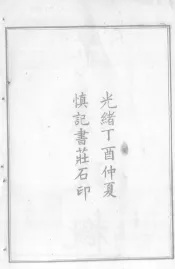 光緒丁酉仲夏
慎記書莊石印